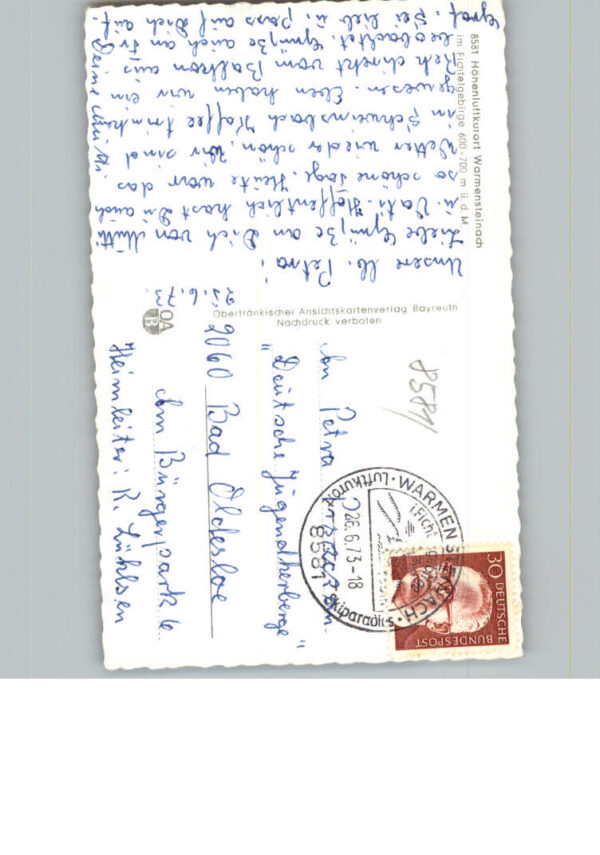 8581 Höhenluftkurort Warmensteinach
im Fichtelgebirge 600-700 m ü. d. M.
25.6.73.
Unsere lb. Petra!
Liebe Grüße an Dich von Mutti
u. Vati. Hoffentlich hast Du auch
so schöne Tage. Heute war das
Wetter wieder schön. Wir sind
im Schwimmbad Kaffee trinken
gewesen. Eben haben wir ein
Reh direkt vom Balkon aus
beobachtet. Grüße auch an Fr.
Graf. Sei lieb u. pass auf Dich auf.
Deine Mutti.
OA
B
Oberfränkischer Ansichtskartenverlag Bayreuth
Nachdruck verboten
8581
An Petra
"Deutsche Jugendherberge"
2060 Bad Oldesloe
Am Bürgerpark 6
Heimleiter: K. Lühlsen
WARMENSTEINACH
i. Ficht
Luftkurort
26.6.73-18
8581
Skiparadies
30
DEUTSCHE
BUNDESPOST